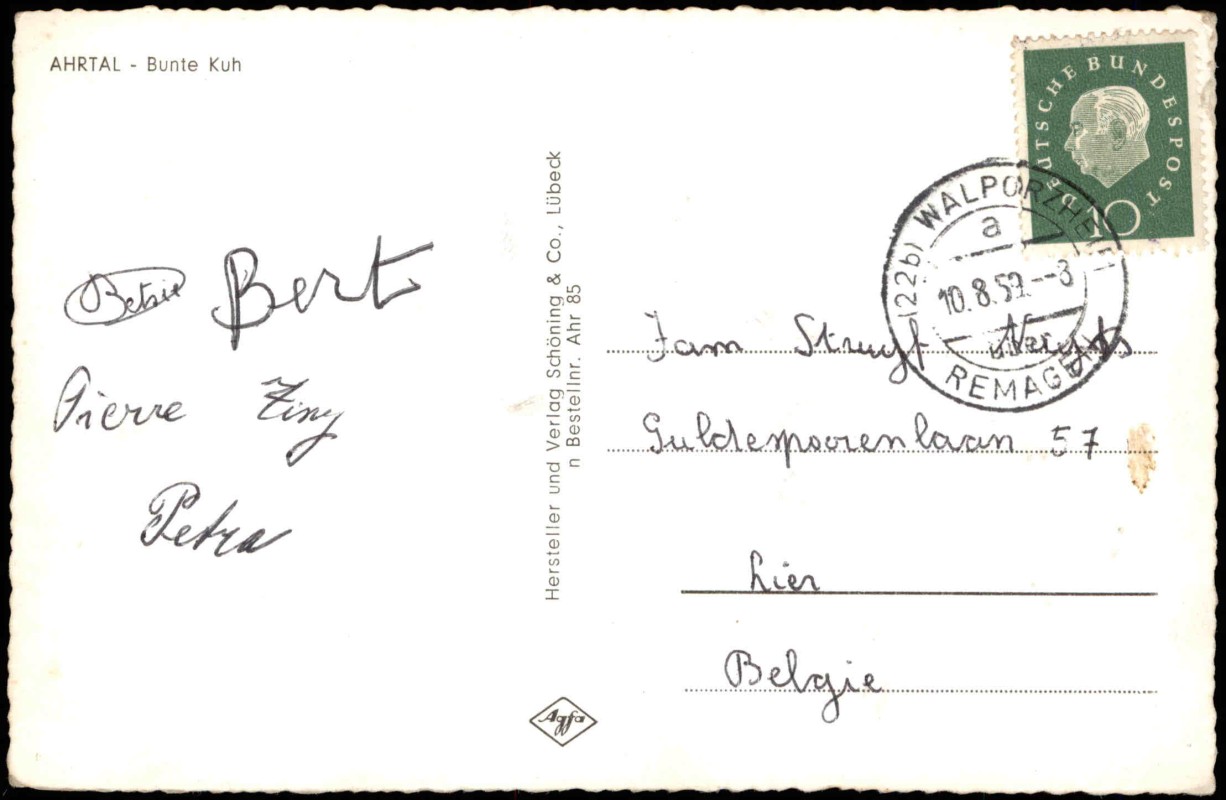 AHRTAL - Bunte Kuh
DEUTSCHE BUNDESPOST
10
(22b) WALPORZHEIM
a
10.8.59.--3
REMAGEN
Betsie Bert
Pierre Tiny
Petra
Hersteller und Verlag Schöning & Co., Lübeck
n Bestellnr. Ahr 85
Fam Struyf -
Guldesporenlaan 57
Lier
Belgie
Agfa